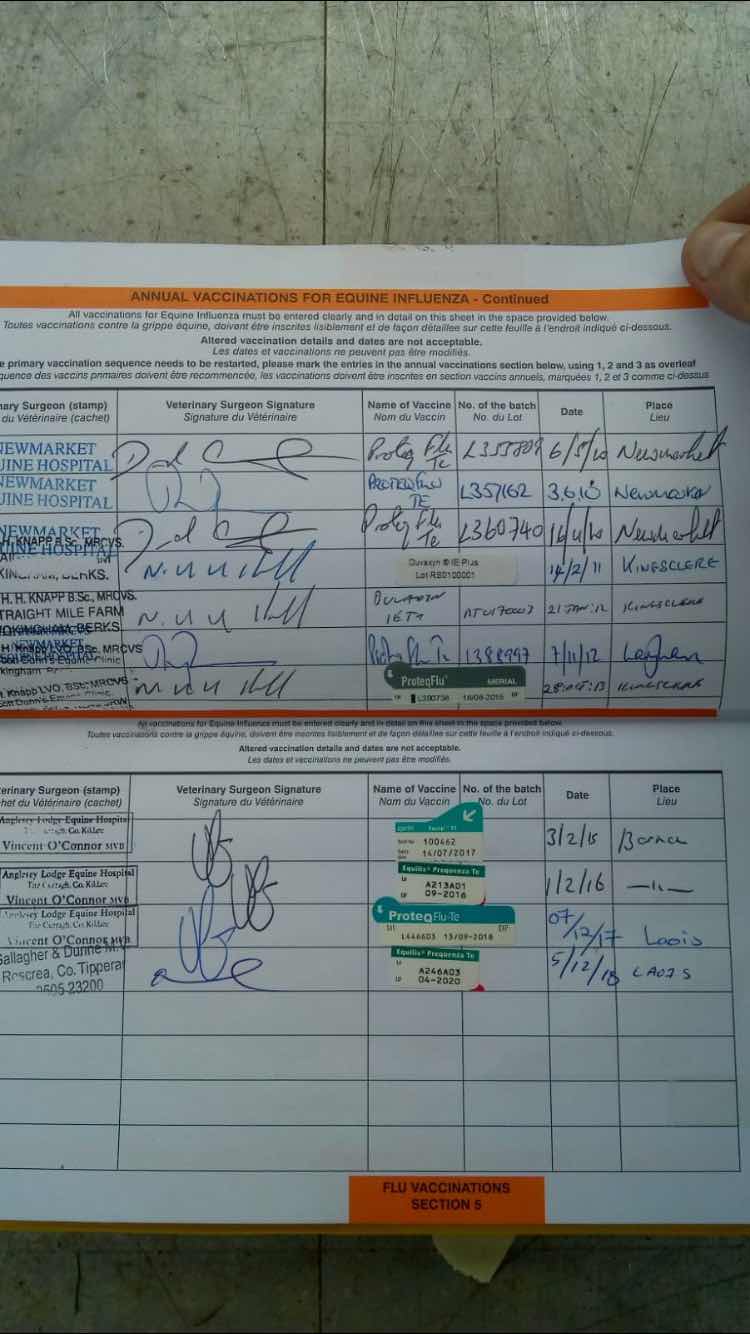 ANNUAL VACCINATIONS FOR EQUINE INFLUENZA - Continued
All vaccinations for Equine Influenza must be entered clearly and in detail on this sheet in the space provided below.
Toutes vaccinations contre la grippe équine, doivent être inscrites lisiblement et de façon détaillées sur cette feuille à l'endroit indiqué ci-dessous.
Altered vaccination details and dates are not acceptable.
Les dates et vaccinations ne peuvent pas être modifiés.
e primary vaccination sequence needs to be restarted, please mark the entries in the annual vaccinations section below, using 1, 2 and 3 as overleaf
quence des vaccins primaires doivent être recommencée, les vaccinations doivent être inscrites en section vaccins annuels, marquées 1, 2 et 3 comme ci-dessus
nary Surgeon (stamp) Veterinary Surgeon Signature Name of Vaccine No. of the batch Date Place
du Vétérinaire (cachet) Signature du Vétérinaire Nom du Vaccin No. du Lot Lieu
NEWMARKET
UINE HOSPITAL Proteq Flu Te L355809 6/5/10 Newmarket
NEWMARKET
UINE HOSPITAL PROTEQFLU TE L357162 3.6.10 Newmarket
NEWMARKET
H. KNAPP B.Sc. MRCVS.
UINE HOSPITAL Proteq Flu Te L360740 Newmarket
BERKS. Duvaxyn ® IE Plus
Lot RS0100001 14/2/11 KINGSCLERE
H. H. KNAPP B.Sc., MRCVS.
TRAIGHT MILE FARM
OKINGHAM, BERKS KINGSCLERE
NEWMARKET
H. Knapp LVO, BSc, MRCVS
7/11/12
H. Knapp LVO, BSc, MRCVS
ProteqFlu MERIAL
L390736 KINGSCLERE
All vaccinations for Equine Influenza must be entered clearly and in detail on this sheet in the space provided below.
Toutes vaccinations contre la grippe équine, doivent être inscrites lisiblement et de façon détaillées sur cette feuille à l'endroit indiqué ci-dessous.
Altered vaccination details and dates are not acceptable.
Les dates et vaccinations ne peuvent pas être modifiés.
erinary Surgeon (stamp) Veterinary Surgeon Signature Name of Vaccine No. of the batch Date Place
het du Vétérinaire (cachet) Signature du Vétérinaire Nom du Vaccin No. du Lot Lieu
Anglesey Lodge Equine Hospital
Co. Kildare
Vincent O'Connor MVB
100462
14/07/2017
3/2/15
Anglesey Lodge Equine Hospital
The Curragh, Co. Kildare
Vincent O'Connor MVB
Equilis® Prequenza Te
A213A01
09-2016
1/2/16 —"—
Anglesey Lodge Equine Hospital
The Curragh, Co. Kildare
Vincent O'Connor MVB
ProteqFlu-Te
L446603 13/09/2018
07/12/17 Laois
Gallagher & Dunne M.
Roscrea, Co. Tipperar
0505 23200
Equilis® Prequenza Te
A246A03
04-2020
5/12/18 LAOIS
FLU VACCINATIONS
SECTION 5